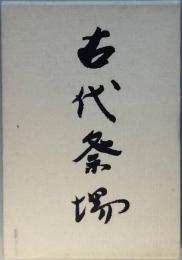 古代祭場